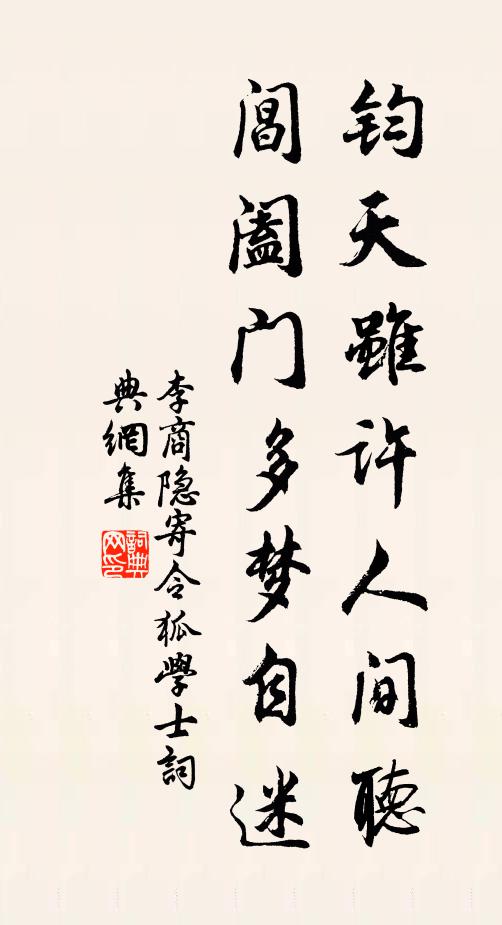 钧天虽许人间聽
阊阖门多梦自迷
李商隐寄令狐學士詞
典網集
詞典网印